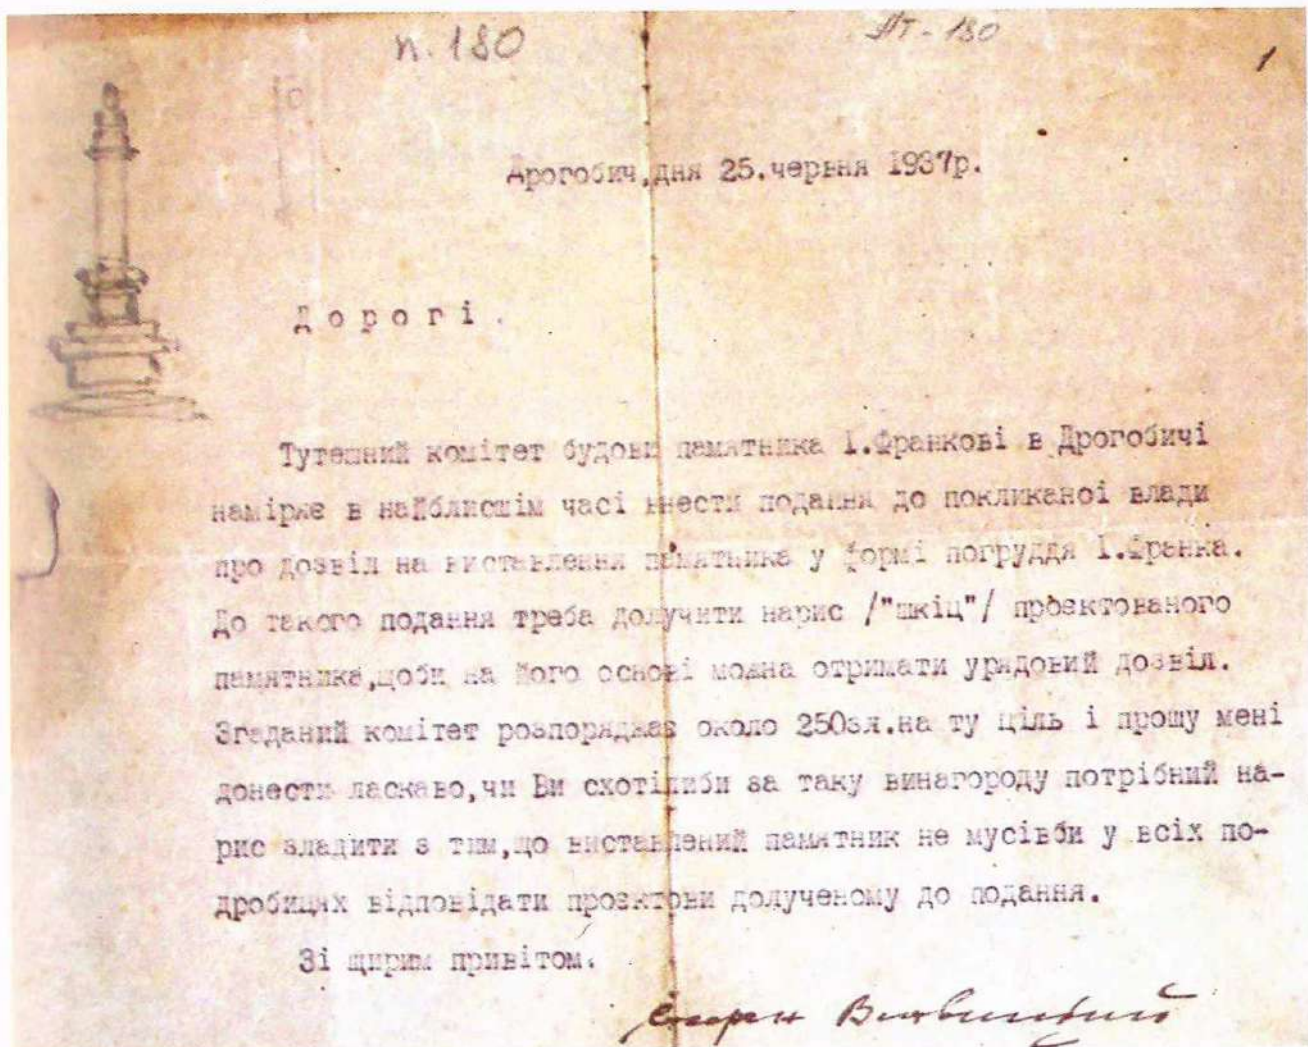 п.180
ЛТ-180
1
Дрогобич,дня 25.червня 1937р.
Дорогі.
Тутешний комітет будови памятника І.Франкові в Дрогобичі
наміряє в найблисшім часі внести подання до покликаної влади
про дозвіл на виставлення памятника у формі погруддя І.Франка.
До такого подання треба долучити нарис /"шкіц"/ проектованого
памятника,щоби на його основі можна отримати урядовий дозвіл.
Згаданий комітет розпоряджає около 250зл.на ту ціль і прошу мені
донести ласкаво,чи Ви схотілиби за таку винагороду потрібний на-
рис зладити з тим,що виставлений памятник не мусівби у всіх по-
дробицях відповідати проєктови долученому до подання.
Зі щирим привітом.